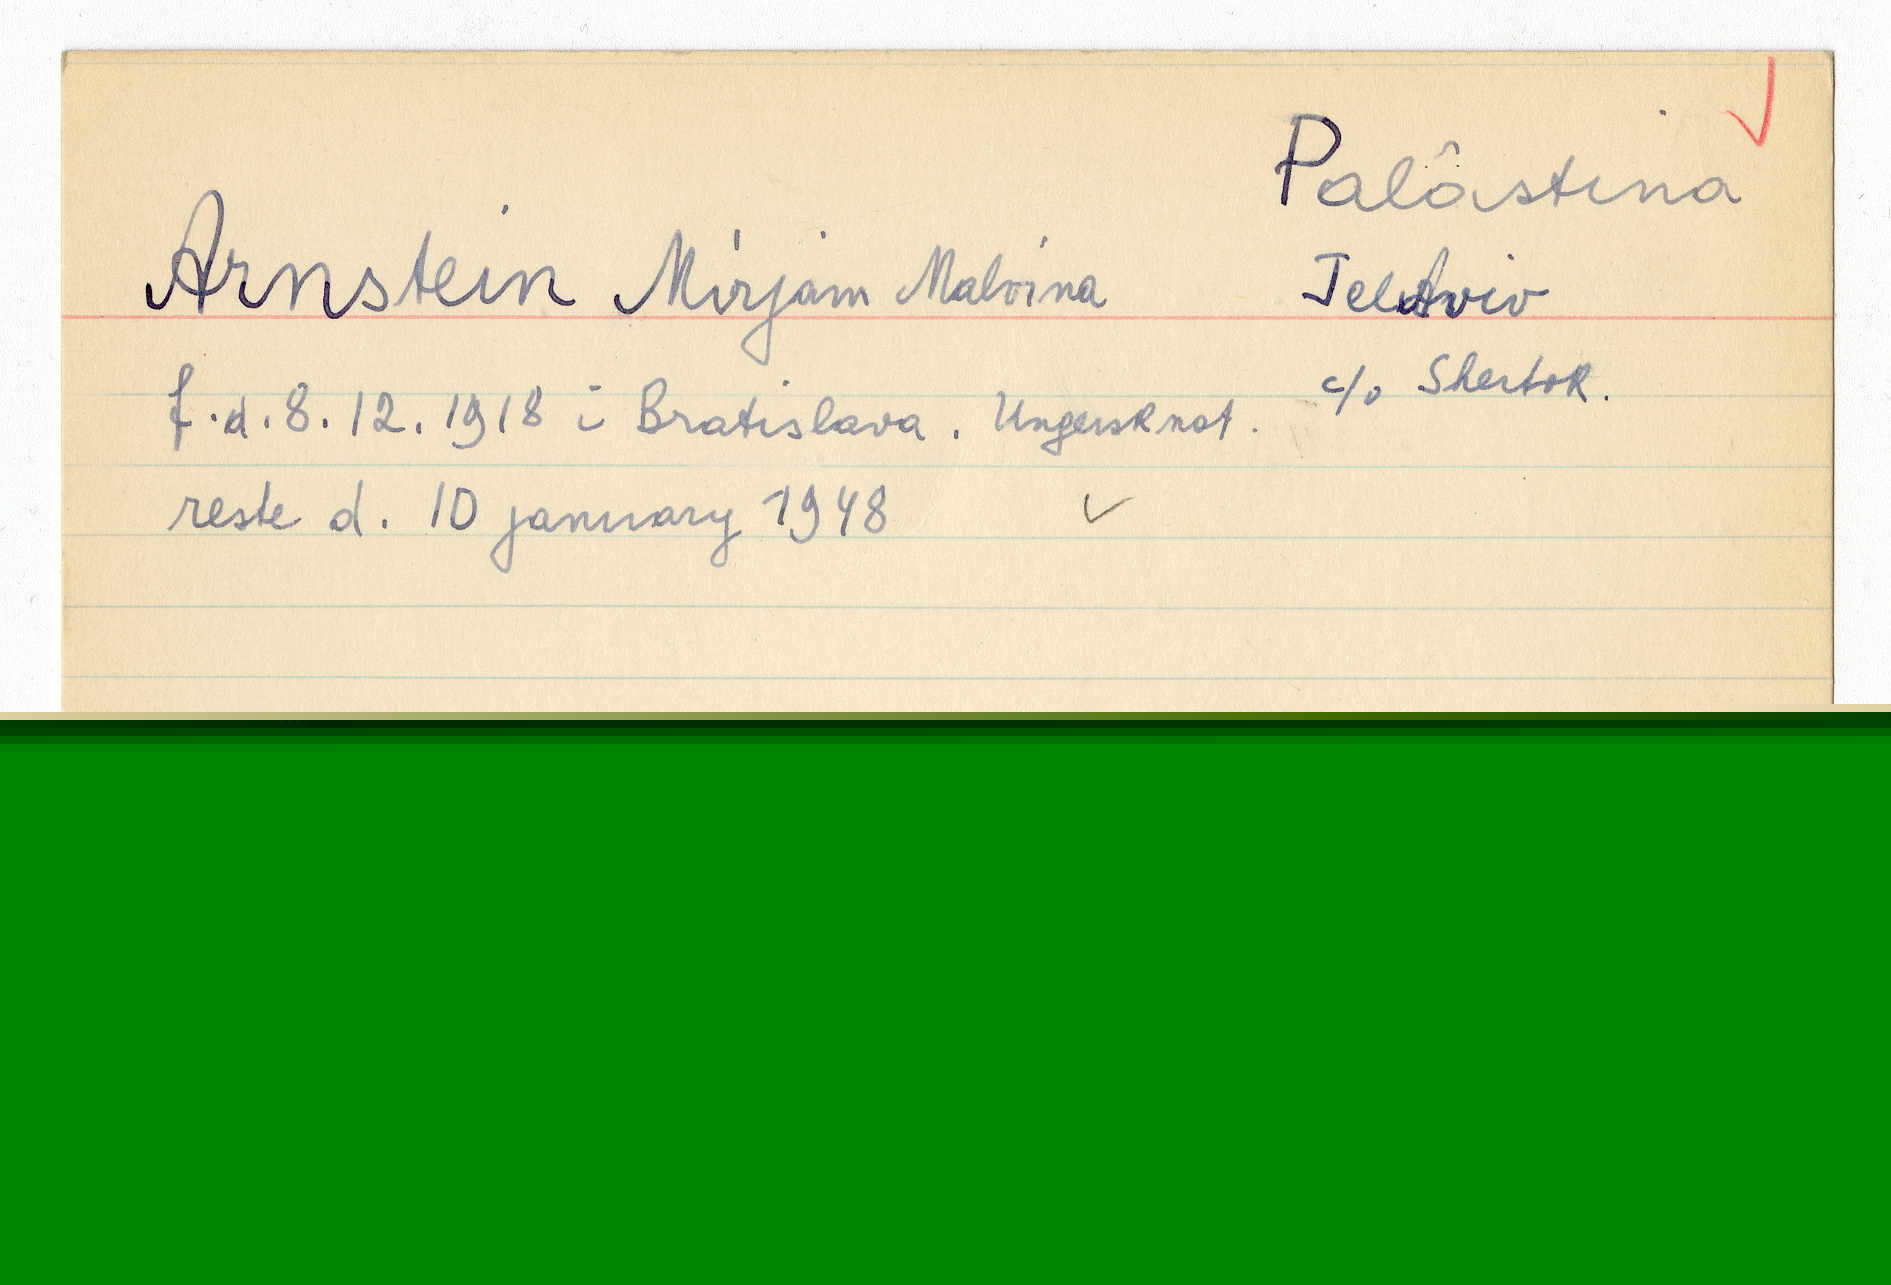 Palâstina
Arnstein Mirjam Malvina
Tel Aviv
c/o Shertok.
f.d. 8.12.1918 i Bratislava. Ungersk nat.
reste d. 10 january 1948